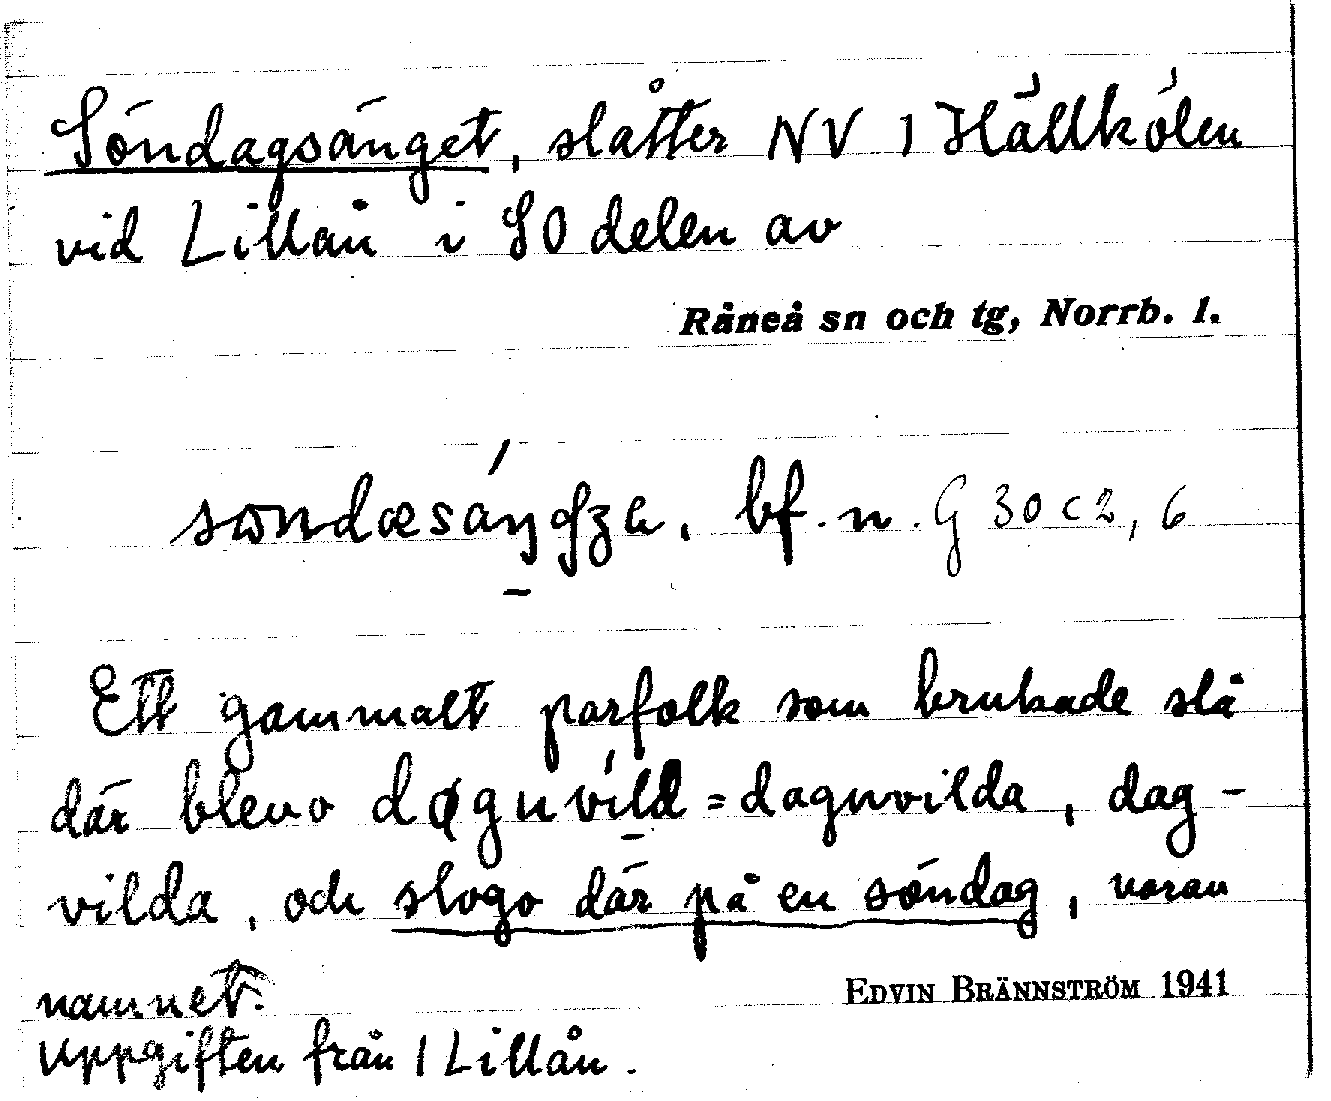 Söndagsänget, slåtter NV 1 Hällkölen
vid Lillån i SO delen av
Råneå sn och tg, Norrb. l.
bf. n. G 30 c 2, 6
Ett gammalt parfolk som brukade slå
där blevo døgnvild = dagnvilda, dag-
vilda, och slogo där på en söndag, varav
namnet.
EDVIN BRÄNNSTRÖM 1941
Uppgiften från 1 Lillån.